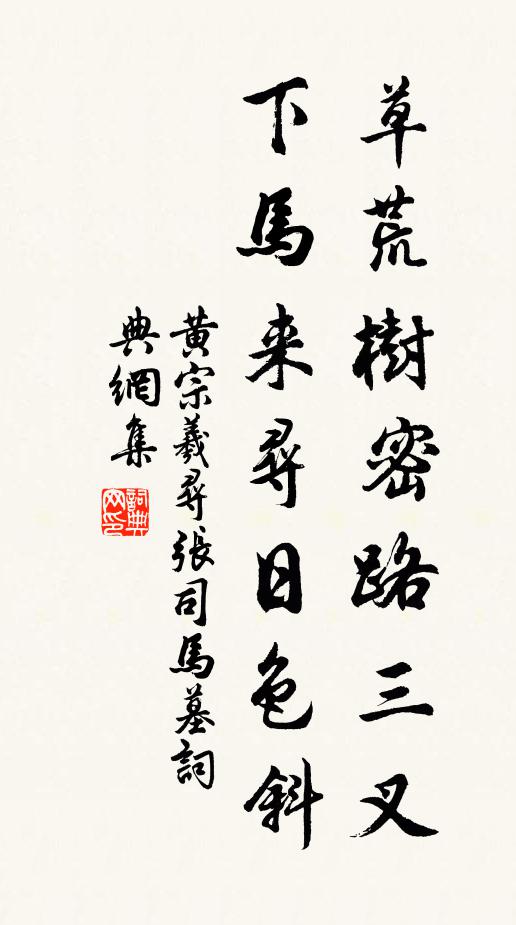 草荒樹密路三叉
下馬来尋日色斜
黄宗羲尋張司馬墓詞
典網集
詞典
网印